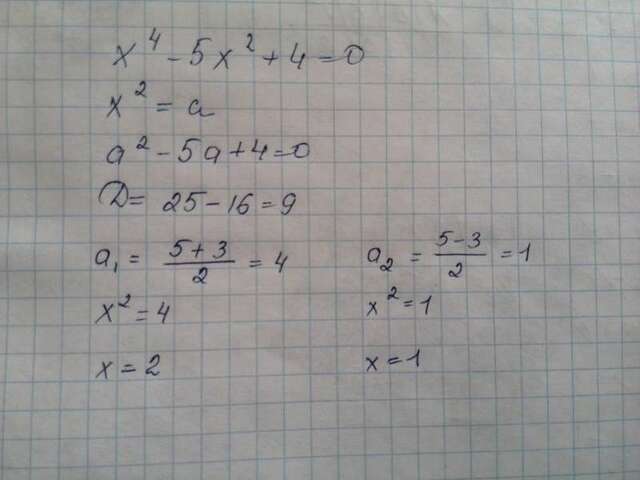 x⁴ - 5x² + 4 = 0
x² = a
a² - 5a + 4 = 0
D = 25 - 16 = 9
a₁ = (5 + 3)/2 = 4
x² = 4
x = 2
a₂ = (5 - 3)/2 = 1
x² = 1
x = 1